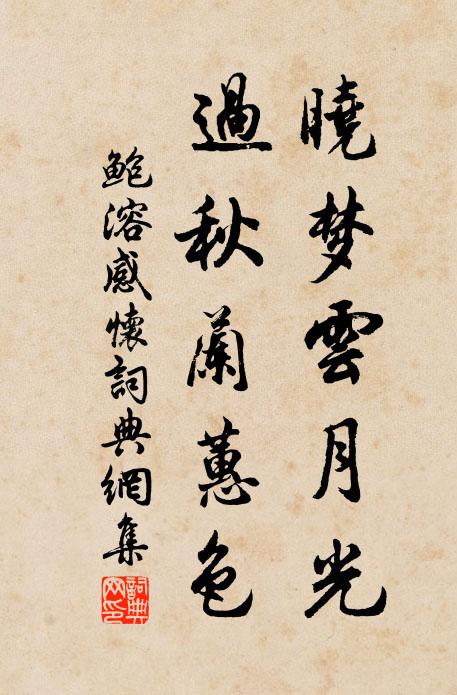 曉梦雲月光
過秋蘭蕙色
鮑溶感懷詞典網集
詞典网印